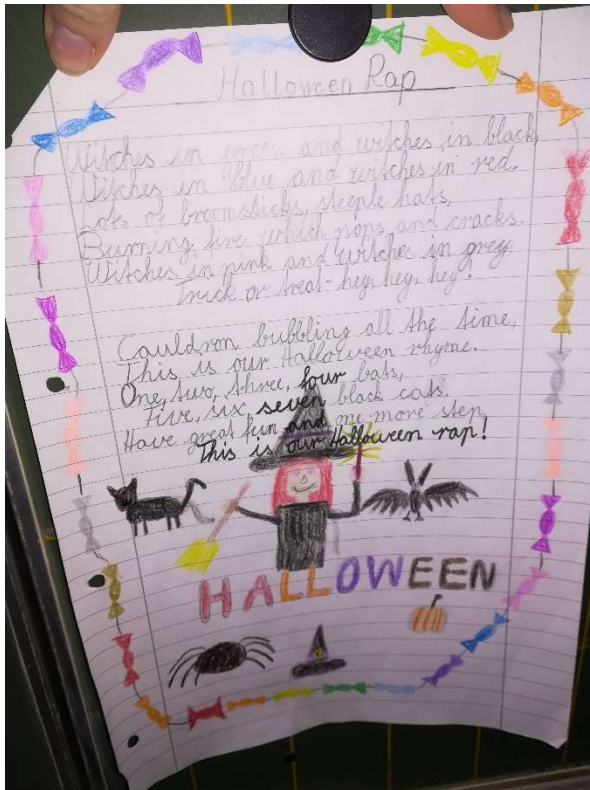 Halloween Rap
Witches in green and witches in black,
Witches in blue and witches in red.
Lots of broomsticks, steeple hats,
Burning fire which pops and cracks.
Witches in pink and witches in grey
Trick or treat - hey, hey, hey!
Cauldron bubbling all the time,
This is our Halloween rhyme.
One, two, three, four bats,
Five, six, seven black cats.
Have great fun and one more step,
This is our Halloween rap!
HALLOWEEN